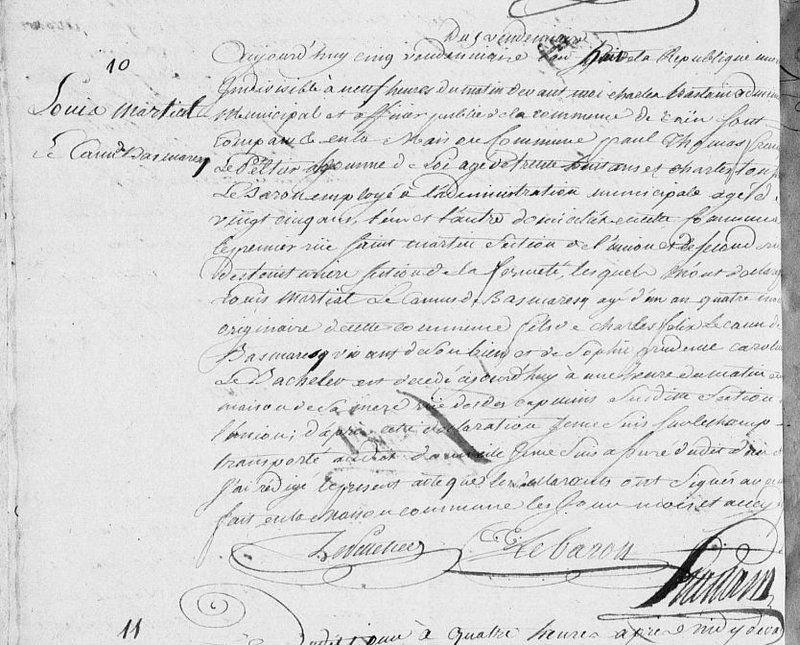 Du 5 vendemiaire
10
Aujourd'huy cinq vendemiaire an huit de la Republique une
Indivisible à neuf heures du matin devant moi charles
Louis Martial
municipal et officier public de la commune de Caen sont
Le Camus Basmaresq
comparus en la Maison Commune paul Thomas
Le Peltier agé de trente huit ans et charles
Le Baron employé à l'administration municipale agé de
vingt cinq ans, l'un et l'autre domiciliés en cette Commune
le premier rüe Saint martin Section de l'union et le second rue
section de la fermeté, lesquels m'ont déclaré
Louis Martial Le Camus de Basmaresq agé d'un an quatre mois
originaire de cette commune fils de Charles felix Le Camus de
Basmaresq vivant de son bien et de Sophie prudence caroline
Le Bachelier est décédé ce jourd'huy à une heure du matin en
maison de sa mere rüe des capucins susditte Section
l'union; d'après cette déclaration Je me suis sur le champ
transporté audit domicile Je me suis assuré dudit décès
J'ai redigé le présent acte que les déclarants ont signés avec
fait en la Maison commune les Jour mois et an cy
Le Peltier
C. C. Le baron
11
Dudit jour à quatre heures après midy devant